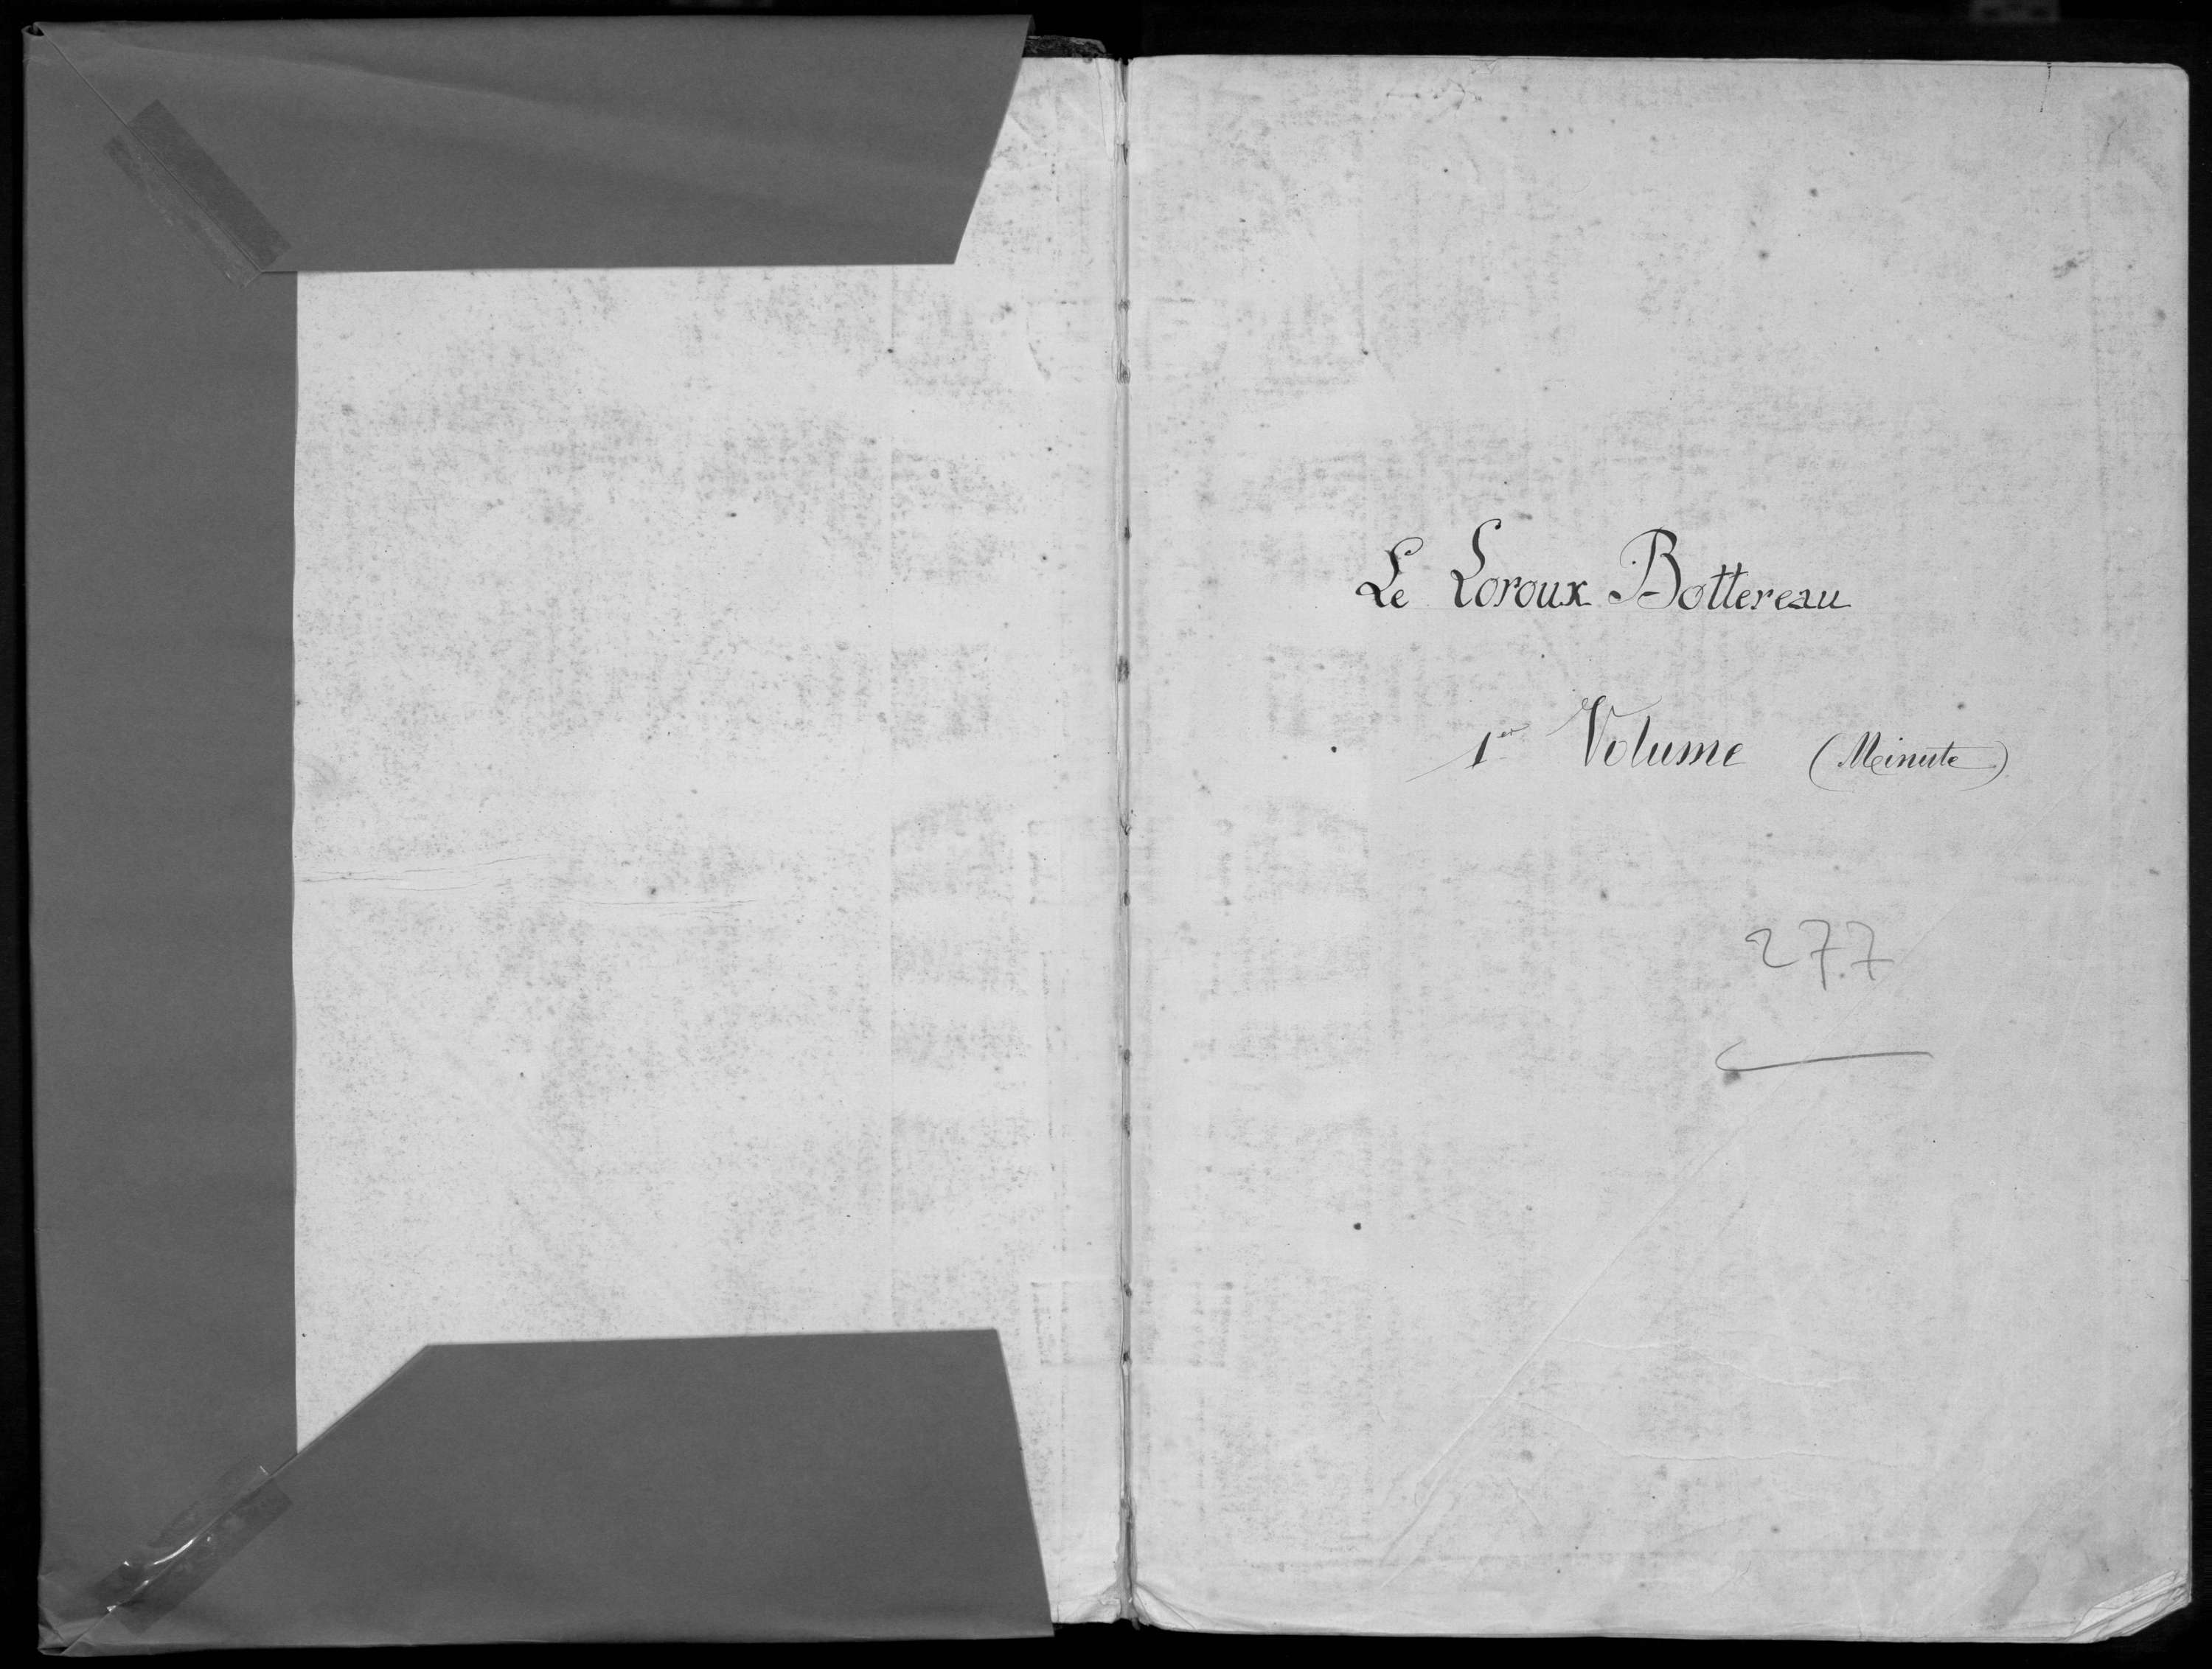 Le Loroux Bottereau
1er Volume (Minute)
277